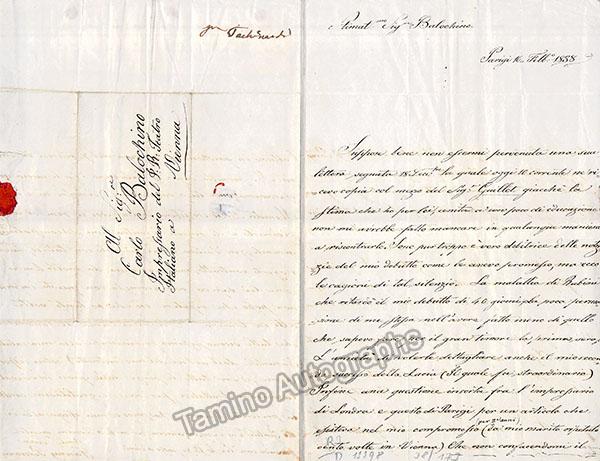 Tachinardi
Al Sigre
Carlo Balochino
Impressario del I. R. Teatro
Italiano a
Vienna
Stimatmo Sigr Balochino
Parigi 10 Febb. 1838
Suppon bene non essermi pervenuta una sua
lettera segnata 18 la quale oggi 10 corrente ne ri
cevo copia col mezo del Sigr Grallet giacche la
stima che ho per Lei, unita a un poco di educazione
non mi avrebbe fatto mancare in qualunque maniera
a riscontrarla. Sono pur troppo è vero debitrice delle noti
zie del mio debutto come le avevo promesso, ma ecco
le cagione di tal silenzio. La malattia di Rubini
che ritardò il mio debutto di 40 giorni
zione di me stessa nell'avere fatto meno di quello
che sapevo pero per il gran timore la prima sera,
L'annata detagliare anche il mio secon
do successo della Lucia (Il quale fu straordinario)
Infine una questione insorta fra l'impressario
di Londra e questo di Parigi per un articolo che
esisteva nel mio compromesso (da mio marito ripetuto
cento volte in Vienna) Che non confacendomi il
Tamino Autographs